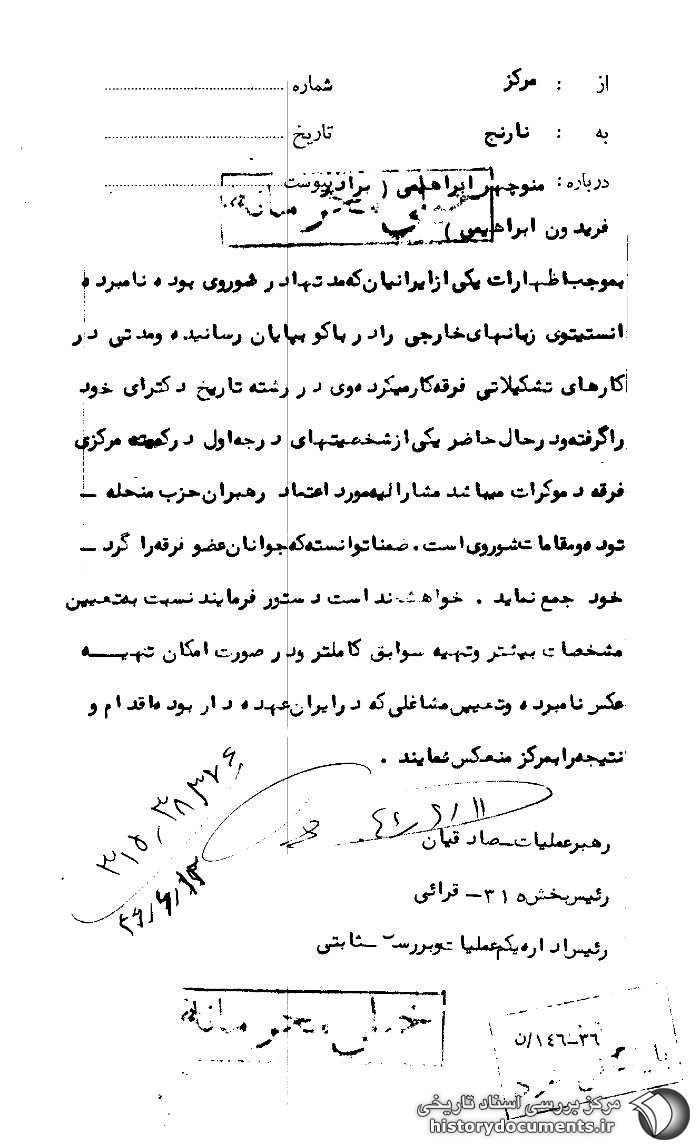 از : مرکز شماره
به : نارنج تاریخ
درباره : منوچهر ابراهیمی ( برادر پیوست
فریدون ابراهیمی )
خیلی محرمانه
بموجب اظهارات یکی از ایرانیان که مدتها در شوروی بوده نامبرده
انستیتوی زبانهای خارجی را در باکو بپایان رسانیده و مدتی در
کارهای تشکیلاتی فرقه کار میکرده وی در رشته تاریخ دکترای خود
را گرفته و در حال حاضر یکی از شخصیتهای درجه اول در کمیته مرکزی
فرقه دموکرات میباشد مشارالیه مورد اعتماد رهبران حزب منحله -
توده و مقامات شوروی است . ضمنا توانسته که جوانان عضو فرقه را گرد -
خود جمع نماید . خواهشمند است دستور فرمایند نسبت به تعیین
مشخصات بیشتر و تهیه سوابق کاملتر و در صورت امکان تهیه
عکس نامبرده و تعیین مشاغلی که در ایران عهده دار بوده اقدام و
نتیجه را بمرکز منعکس نمایند .
رهبر عملیات - صادقیان
رئیس بخش ۳۱۵ - قرائی
رئیس اداره یکم عملیات و بررسی - ثابتی
خیلی محرمانه
۳۶-۱۴۶/ن
مرکز بررسی اسناد تاریخی
historydocuments.ir